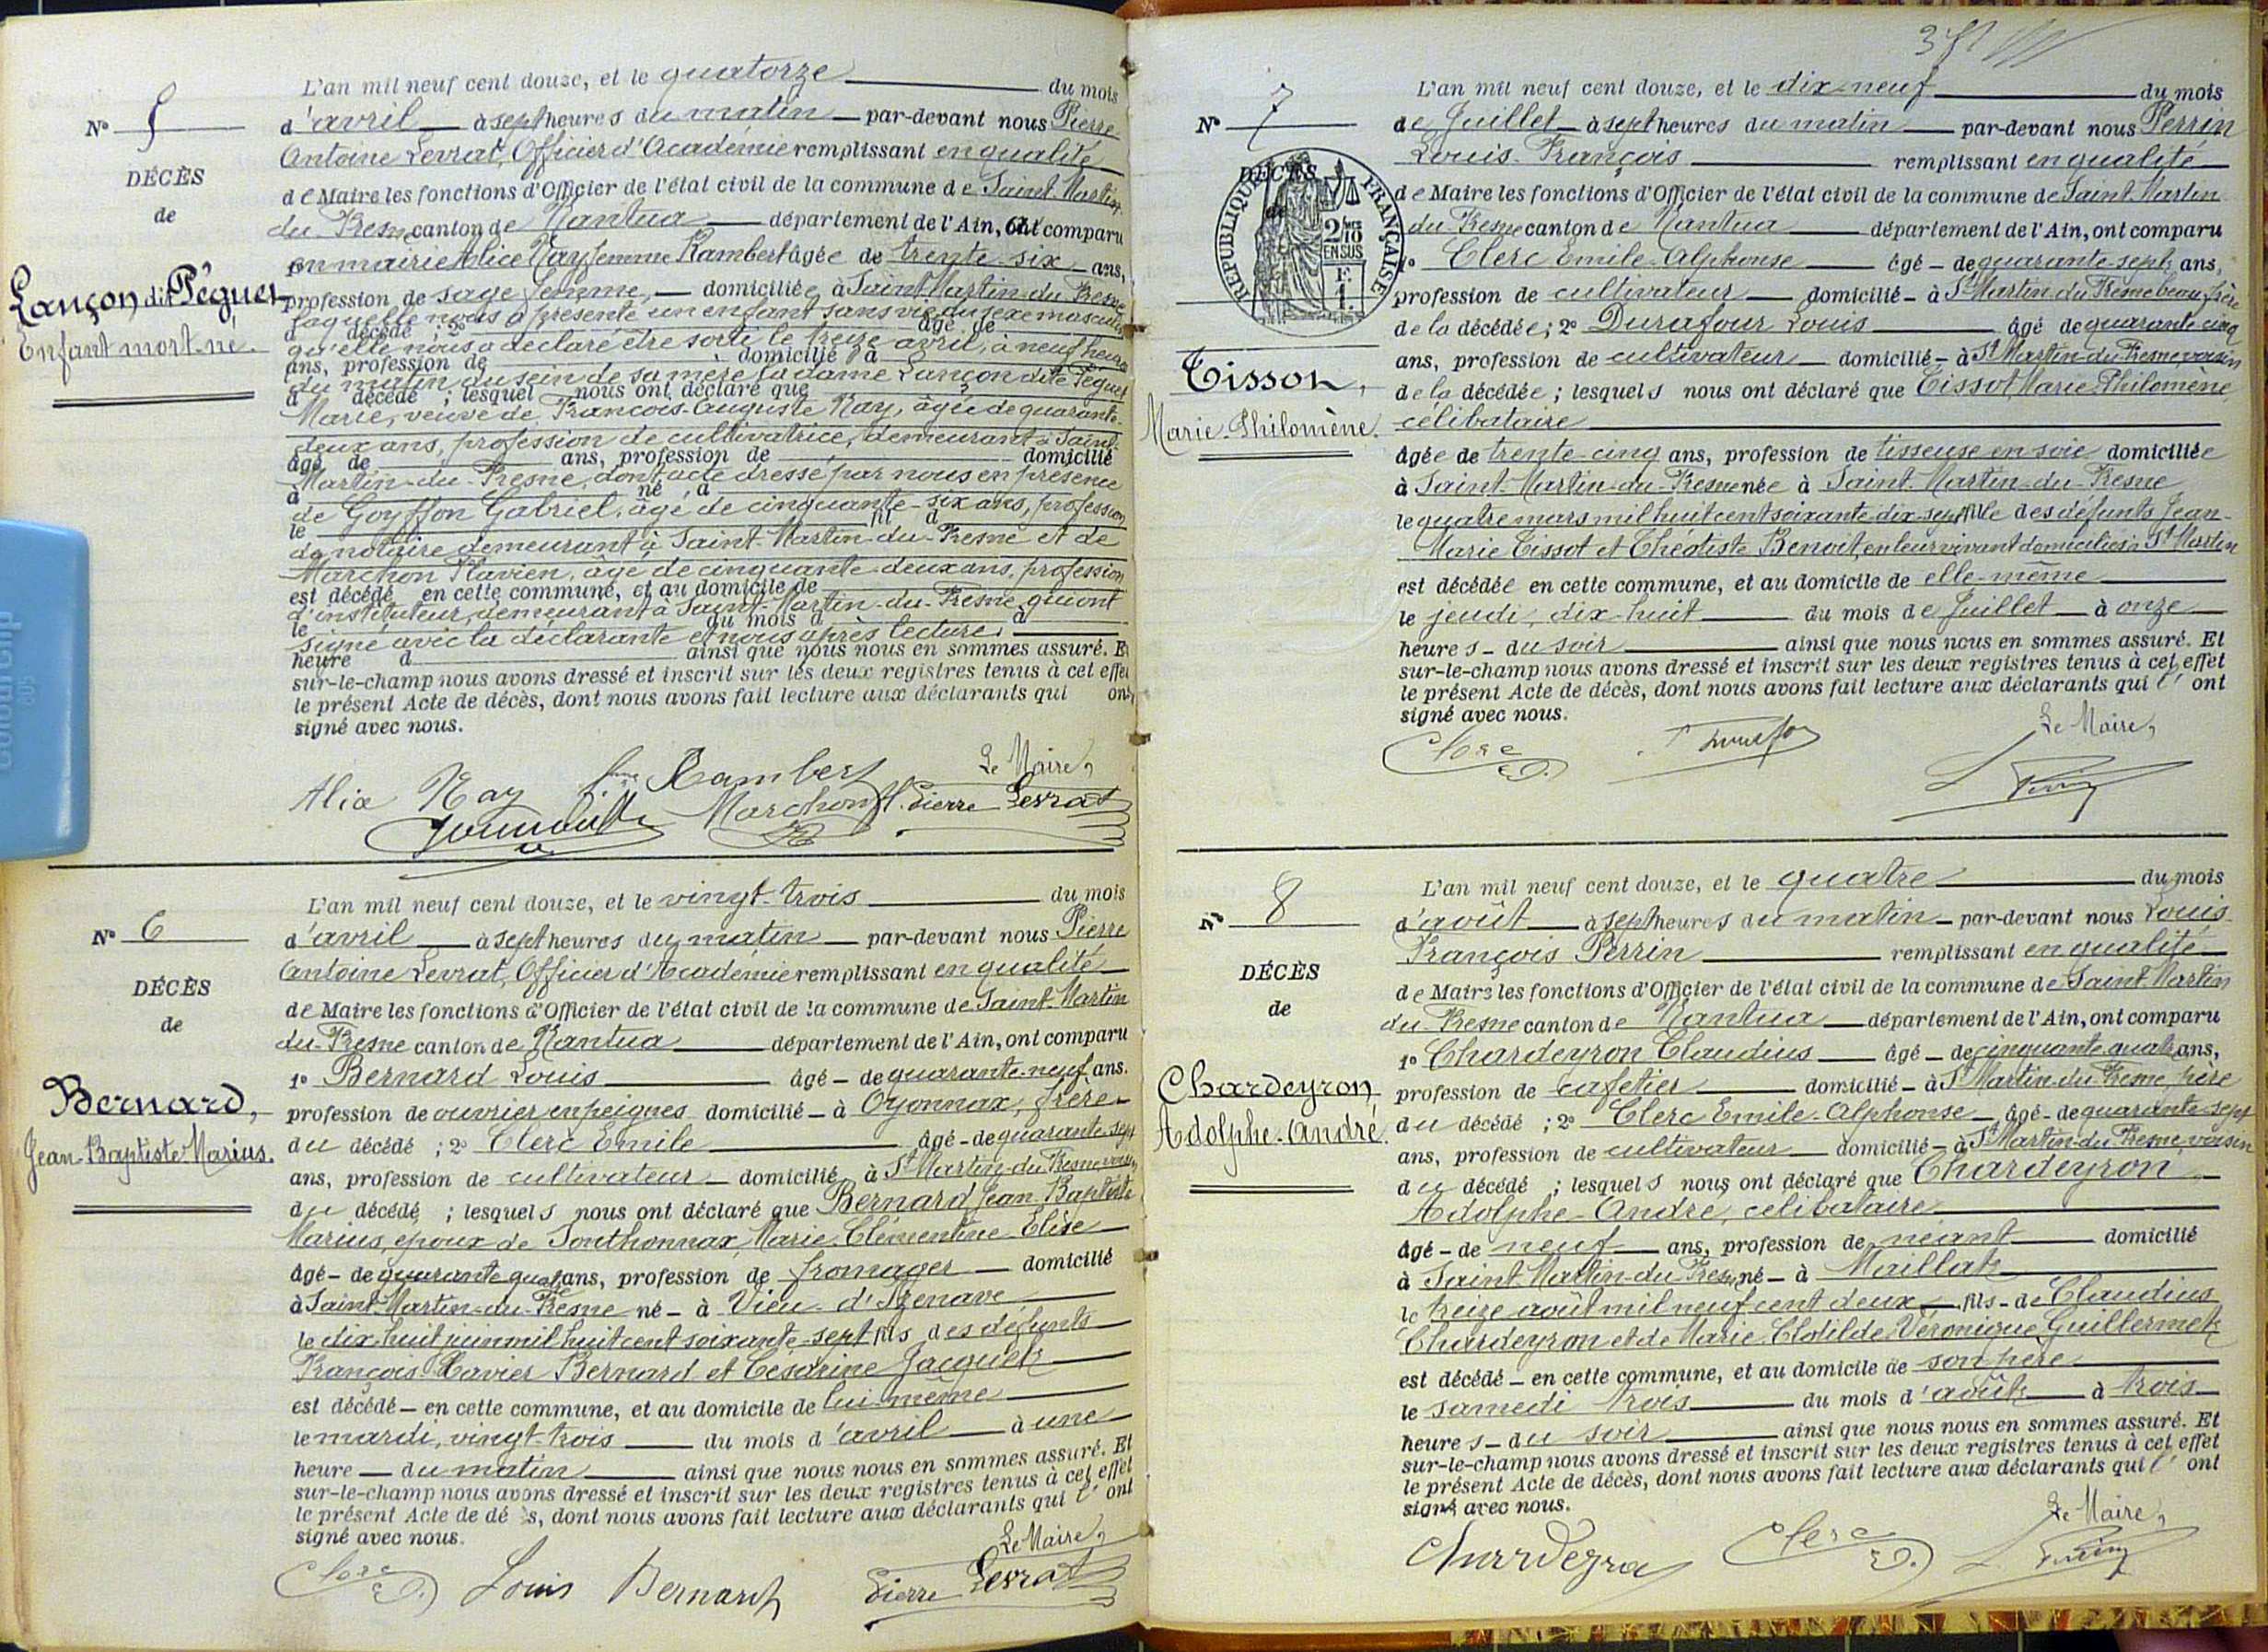 L'an mil neuf cent douze, et le quatorze du mois
N° 5
d'avril à sept heures du matin par-devant nous Pierre
Antoine Levrat, Officier d'Académie remplissant en qualité
DÉCÈS
de Maire les fonctions d'Officier de l'état civil de la commune de Saint-Martin
de
du Fresne canton de Nantua département de l'Ain, a comparu
en mairie Alice Nay femme Rambert âgée de trente-six ans,
Lançon dit Péguet
profession de sage femme, domiciliée à Saint-Martin-du-Fresne
laquelle nous a présenté un enfant sans vie du sexe masculin
décédé ; 2° âgé de
Enfant mort-né.
qu'elle nous a déclaré être sorti le treize avril, à neuf heures
ans, profession de domicilié à
du matin du sein de sa mère la dame Lançon dite Péguet
d décédé ; lesquel nous ont déclaré que
Marie, veuve de François-Auguste Nay, âgée de quarante-
deux ans, profession de cultivatrice, demeurant à Saint-
âgé de ans, profession de domicilié
Martin-du-Fresne, dont acte dressé par nous en présence
à né à
de Goyffon Gabriel, âgé de cinquante-six ans, profession
le fil d
de notaire demeurant à Saint-Martin-du-Fresne et de
Marchon Flavien, âgé de cinquante-deux ans, profession
est décédé en cette commune, et au domicile de
d'instituteur, demeurant à Saint-Martin-du-Fresne qui ont
le du mois d à
signé avec la déclarante et nous après lecture.
heure d ainsi que nous nous en sommes assuré. Et
sur-le-champ nous avons dressé et inscrit sur les deux registres tenus à cet effet
le présent Acte de décès, dont nous avons fait lecture aux déclarants qui ont
signé avec nous.
Le Maire,
Alix Nay fme Rambert
Marchon Fl. Pierre Levrat
L'an mil neuf cent douze, et le vingt-trois du mois
N° 6
d'avril à sept heures du matin par-devant nous Pierre
Antoine Levrat, Officier d'Académie remplissant en qualité
DÉCÈS
de Maire les fonctions d'Officier de l'état civil de la commune de Saint-Martin
de
du-Fresne canton de Nantua département de l'Ain, ont comparu
1° Bernard Louis âgé de quarante-neuf ans.
Bernard,
profession de ouvrier en peignes domicilié à Oyonnax, frère
du décédé ; 2° Clerc Emile âgé de quarante-sept
Jean-Baptiste Marius.
ans, profession de cultivateur domicilié à St Martin-du-Fresne voisin
du décédé ; lesquels nous ont déclaré que Bernard Jean-Baptiste
Marius, époux de Southonnax Marie-Clémentine-Elise
âgé de quarante-quatre ans, profession de fromager domicilié
à Saint-Martin-du-Fresne né à Vieu-d'Izenave
le dix-huit juin mil huit cent soixante-sept fils des défunts
François-Xavier Bernard et Césarine Jacquet
est décédé en cette commune, et au domicile de lui-même
le mardi, vingt-trois du mois d'avril à une
heure du matin ainsi que nous nous en sommes assuré. Et
sur-le-champ nous avons dressé et inscrit sur les deux registres tenus à cet effet
le présent Acte de dé s, dont nous avons fait lecture aux déclarants qui l'ont
signé avec nous.
Le Maire,
Clerc E. Louis Bernard Pierre Levrat
L'an mil neuf cent douze, et le dix-neuf du mois
N° 7
de Juillet à sept heures du matin par-devant nous Perrin
Louis-François remplissant en qualité
DÉCÈS
de
RÉPUBLIQUE FRANÇAISE
2/10 EN SUS
F. 1.
de Maire les fonctions d'Officier de l'état civil de la commune de Saint-Martin
du-Fresne canton de Nantua département de l'Ain, ont comparu
1° Clerc Emile-Alphonse âgé de quarante-sept ans,
profession de cultivateur domicilié à St Martin du Fresne beau-frère
de la décédée ; 2° Durafour Louis âgé de quarante-cinq
ans, profession de cultivateur domicilié à St Martin-du-Fresne, voisin
Tissot,
de la décédée ; lesquels nous ont déclaré que Tissot Marie Philomène
Marie-Philomène.
célibataire
âgée de trente-cinq ans, profession de tisseuse en soie domiciliée
à Saint-Martin-du-Fresne née à Saint-Martin-du-Fresne
le quatre mars mil huit cent soixante-dix-sept fille des défunts Jean-
Marie Tissot et Théotiste Benoit, en leur vivant domiciliés à St Martin
est décédée en cette commune, et au domicile de elle-même
le jeudi, dix-huit du mois de Juillet à onze
heures du soir ainsi que nous nous en sommes assuré. Et
sur-le-champ nous avons dressé et inscrit sur les deux registres tenus à cet effet
le présent Acte de décès, dont nous avons fait lecture aux déclarants qui l'ont
signé avec nous.
Le Maire,
Clerc E. L Perrin
L'an mil neuf cent douze, et le quatre du mois
N° 8
d'août à sept heures du matin par-devant nous Louis
François Perrin remplissant en qualité
DÉCÈS
de Maire les fonctions d'Officier de l'état civil de la commune de Saint-Martin
de
du-Fresne canton de Nantua département de l'Ain, ont comparu
1° Chardeyron Claudius âgé de cinquante-quatre ans,
Chardeyron
profession de cafetier domicilié à St Martin-du-Fresne, père
du décédé ; 2° Clerc Emile-Alphonse âgé de quarante-sept
Adolphe-André.
ans, profession de cultivateur domicilié à St Martin-du-Fresne voisin
du décédé ; lesquels nous ont déclaré que Chardeyron
Adolphe-André, célibataire
âgé de neuf ans, profession de néant domicilié
à Saint-Martin-du-Fresne né à Maillat
le treize août mil neuf cent deux fils de Claudius
Chardeyron et de Marie-Clotilde-Véronique Guillermet
est décédé en cette commune, et au domicile de son père
le samedi trois du mois d'août à trois
heures du soir ainsi que nous nous en sommes assuré. Et
sur-le-champ nous avons dressé et inscrit sur les deux registres tenus à cet effet
le présent Acte de décès, dont nous avons fait lecture aux déclarants qui l'ont
signé avec nous.
Le Maire,
Chardeyron Clerc E. L Perrin